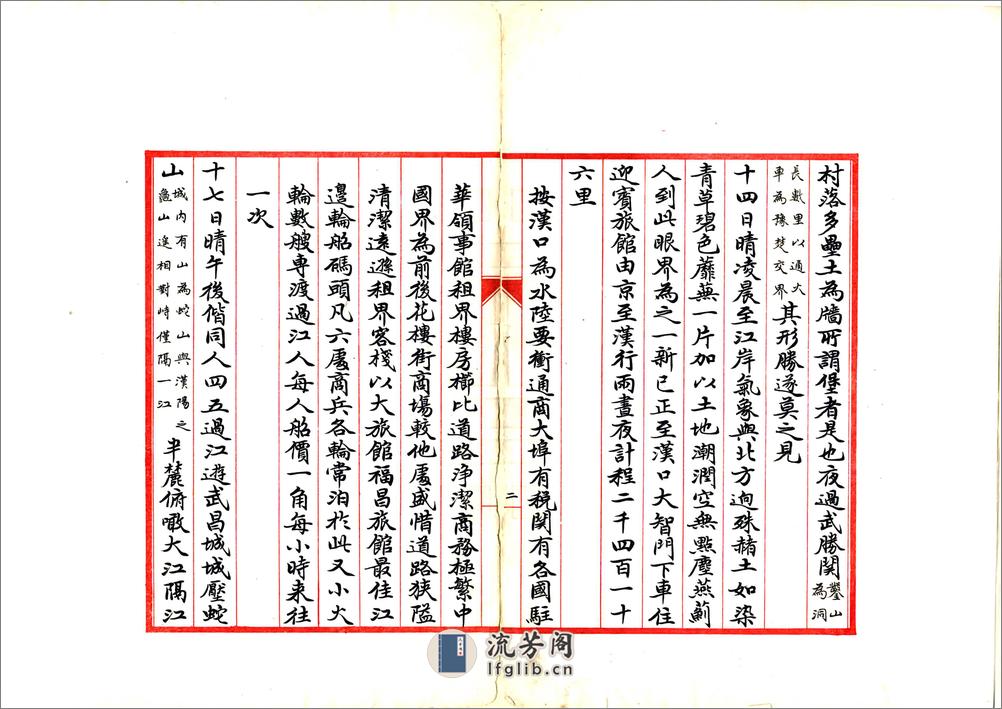 村落多壘土為牆所謂堡者是也夜過武勝關鑿山為洞
長數里以通大車為豫楚交界其形勝遂莫之見
十四日晴凌晨至江岸氣象與北方逈殊赭土如染
青草碧色蘼蕪一片加以土地潮潤空無點塵燕薊
人到此眼界為之一新已正至漢口大智門下車住
迎賓旅館由京至漢行兩晝夜計程二千四百一十
六里
按漢口為水陸要衝通商大埠有稅関有各國駐
二
華領事館租界樓房櫛比道路淨潔商務極繁中
國界為前後花樓街商場較他處盛惜道路狹隘
清潔遠遜租界客棧以大旅館福昌旅館最佳江
邊輪船碼頭凡六處商兵各輪常泊於此又小火
輪數艘專渡過江人每人船價一角每小時来往
一次
十七日晴午後偕同人四五過江遊武昌城城壓蛇
山城內有山為蛇山與漢陽之龜山遙相對峙僅隔一江半麓俯瞰大江隔江
流芳阁
lfglib.cn